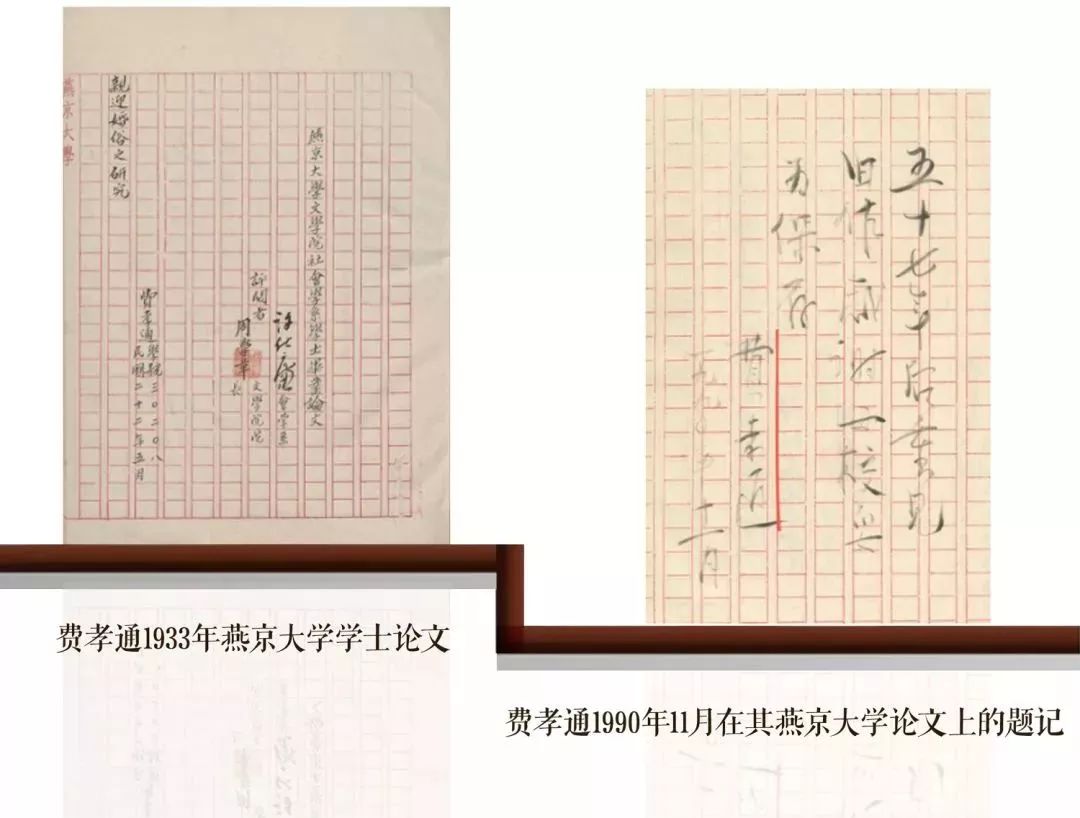 燕京大學文學院社會學系學士畢業論文
許仕廉
會學系
評閱者
周學章
文學院院
長
費孝通學號三〇二〇八
民國二十二年五月
親迎婚俗之研究
燕京大學
费孝通1933年燕京大学学士论文
五十七年后重见
旧作感谢母校
为保存
费孝通
一九九〇年十一月
费孝通1990年11月在其燕京大学论文上的题记